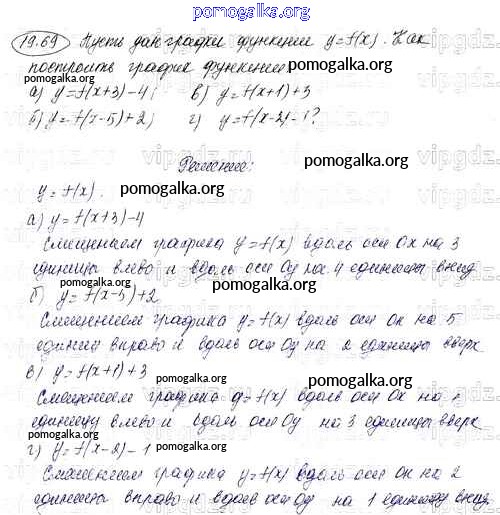 pomogalka.org
19.69 Пусть дан график функции y=f(x). Как
построить график функции:
pomogalka.org
а) y=f(x+3)-4; в) y=f(x+1)+3
б) y=f(x-5)+2; г) y=f(x-2)-1?
Решение:
pomogalka.org
y=f(x).
pomogalka.org
а) y=f(x+3)-4
Смещением графика y=f(x) вдоль оси Ox на 3
единицы влево и вдоль оси Oy на 4 единицы вниз
pomogalka.org
pomogalka.org
б) y=f(x-5)+2
Смещением графика y=f(x) вдоль оси Ox на 5
единиц вправо и вдоль оси Oy на 2 единицы вверх
pomogalka.org
в) y=f(x+1)+3
pomogalka.org
Смещением графика y=f(x) вдоль оси Ox на 1
единицу влево и вдоль оси Oy на 3 единицы вверх
pomogalka.org
pomogalka.org
г) y=f(x-2)-1
Смещением графика y=f(x) вдоль оси Ox на 2
единицы вправо и вдоль оси Oy на 1 единицу вниз